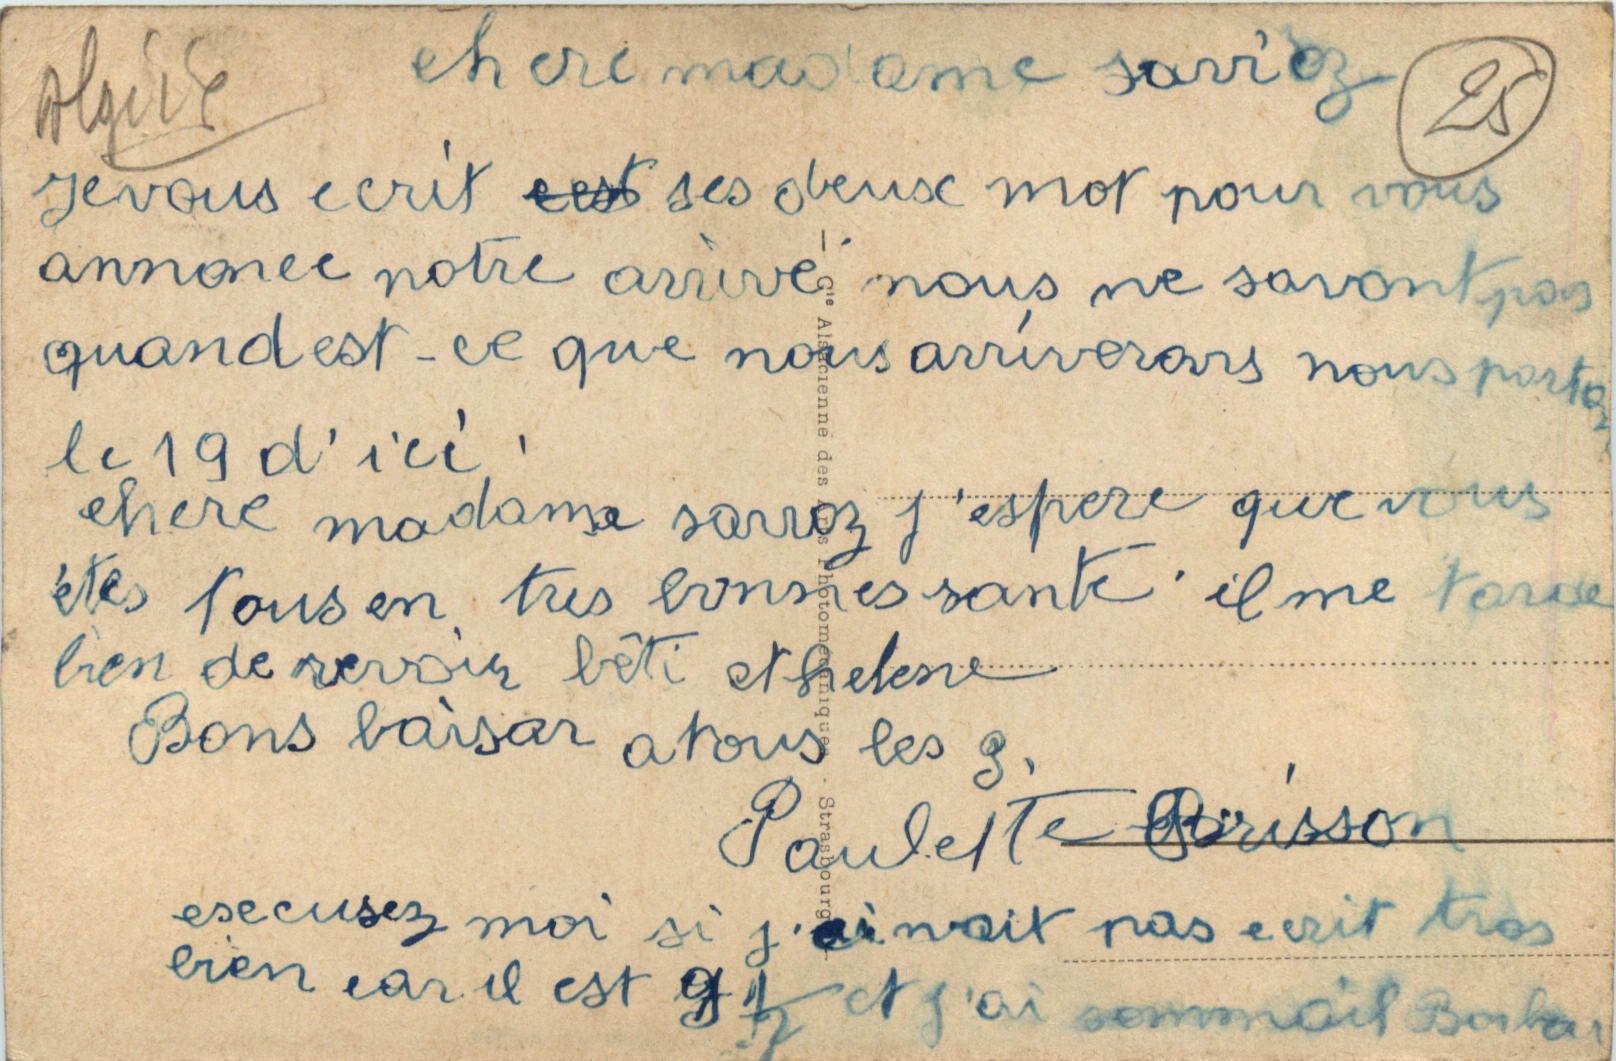 Algérie
25
chere madame sarroz
Je vous ecrit ses deux mot pour vous
annonce notre arrivé nous ne savont pas
quand est-ce que nous arriverons nous
le 19 d'ici.
chere madame sarroz j'espere que vous
êtes tous en tres bonnes santé. il me tarde
bien de revoir bêti et helene
Bons baisar a tous les
Paulette Brisson
excusez moi si j'ai nait pas ecrit tres
bien car il est 9 1/2 et j'ai sommail
— Cie Alsacienne des Arts Photomécaniques - Strasbourg —